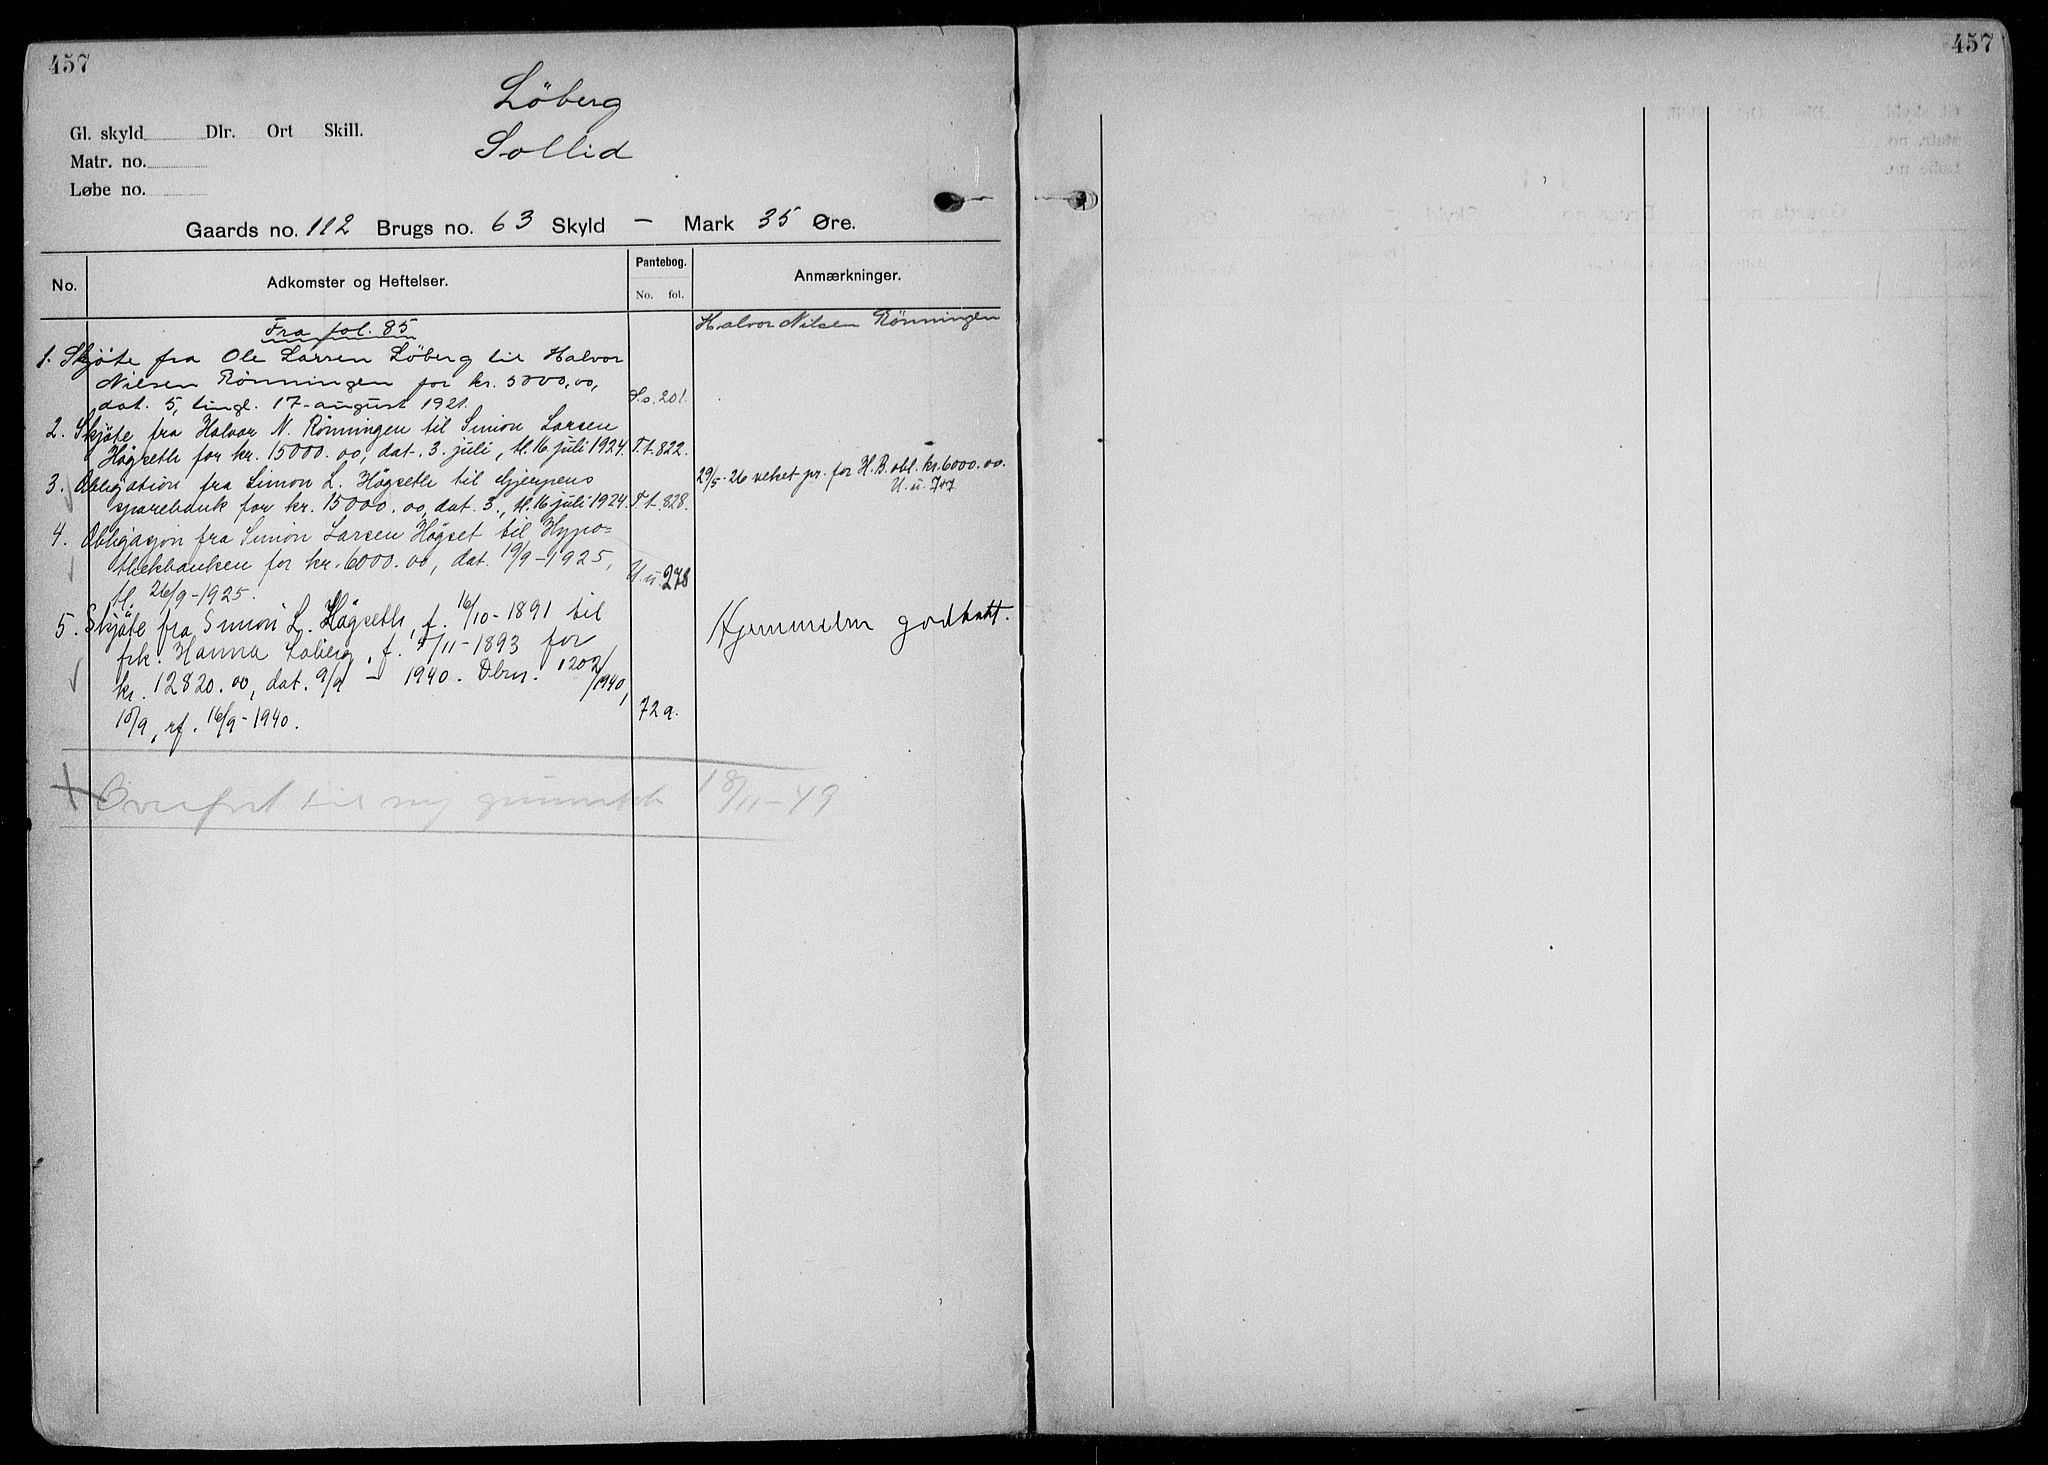 457
457
Löberg
Gl. skyld Dlr. Ort Skill.
Sollid
Matr. no.
Løbe no.
Gaards no. 112 Brugs no. 63 Skyld – Mark 35 Øre.
No. Adkomster og Heftelser. Pantebog. Anmærkninger.
No. fol.
Fra fol. 85
Halvor Nilsen Rönningen
1. Skjöte fra Ole Larsen Löberg til Halvor
Nilsen Rönningen for kr. 5000,00,
dat. 5, tingl. 17-august 1921. S.s. 201.
2. Skjöte fra Halvor N. Rönningen til Simon Larsen
Högseth for kr. 15000.00, dat. 3. juli, tl. 16 juli 1924. T.t. 822.
3. Obligation fra Simon L. Högseth til Gjerpens
29/5-26 veket pr. for H.B. obl. kr. 6000.00.
U.u. 747
sparebank for kr. 15000.00, dat. 3., tl. 16 juli 1924. T.t. 828.
4. Obligasjon fra Simon Larsen Högset til Hypo-
thekbanken for kr. 6000.00, dat. 19/9-1925,
tl. 26/9-1925. U.u. 278
5. Skjöte fra Simon L. Högseth, f. 16/10-1891 til
Hjemmelen godkatt.
frk. Hanna Löberg, f. /11-1893 for
kr. 12820.00, dat. 9/9 - 1940. Dbnr. 1202/1940,
10/9, rf. 16/9-1940. 72a.
Overfört til ny grunnbok 18/11-49